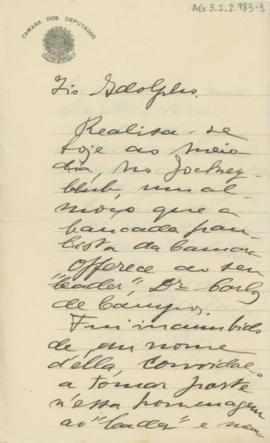 AG 3.2.2.983-1
CAMARA DOS DEPUTADOS
Tio Adolpho.
Realisa-se
hoje ao meio
dia, no Jockey-
Club, um al-
moço que a
bancada pau-
lista da Camara
offerece ao seu
"leader", Dr Carlos
de Campos.
Fui incumbido
de em nome
della, convidal-o
a tomar parte
n'essa homenagem
ao "leader" e